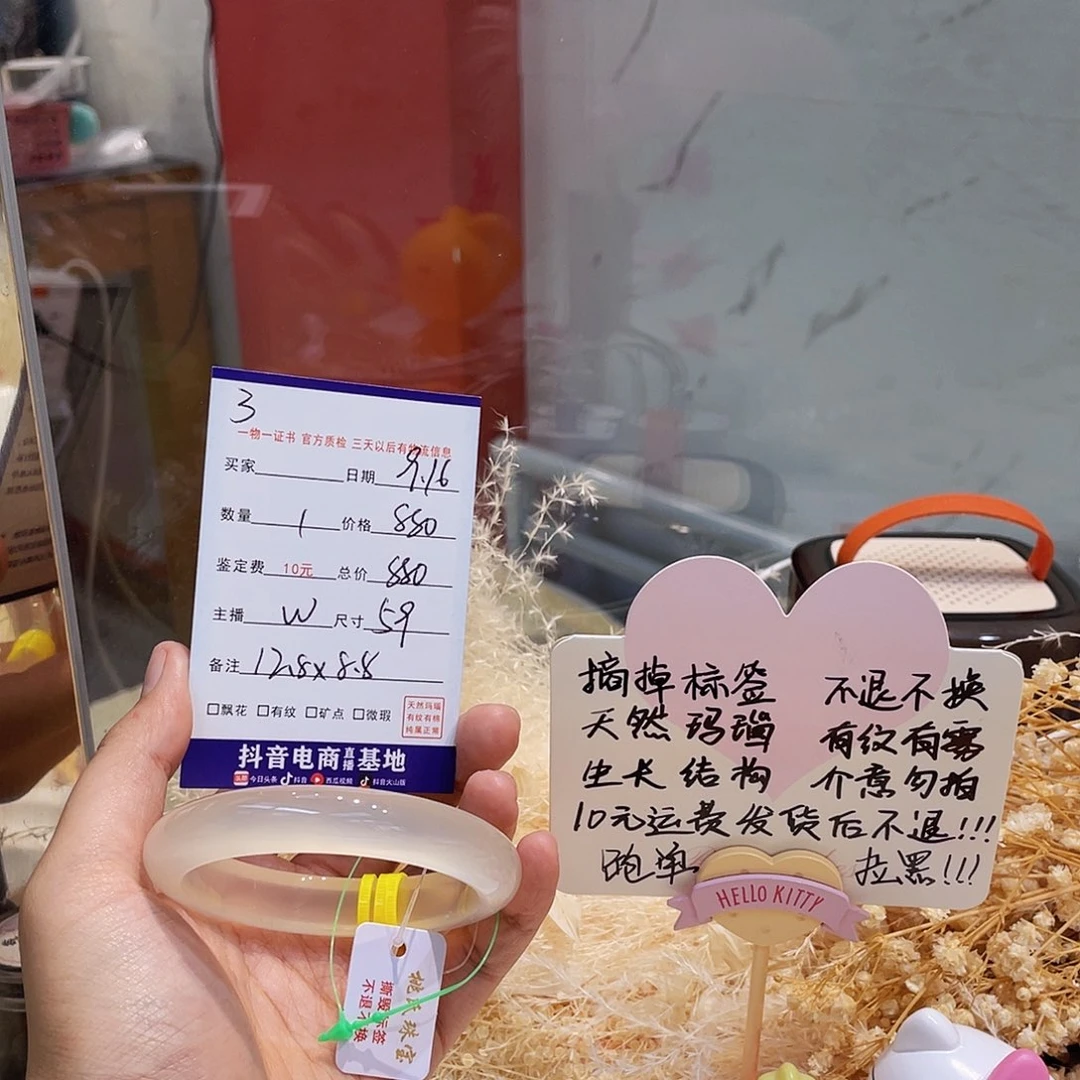 3
一物一证书 官方质检 三天以后有物流信息
买家 日期 9.16
数量 1 价格 880
鉴定费 10元 总价 880
主播 W 尺寸 59
备注 12.8x8.8
□飘花 □有纹 □矿点 □微瑕
天然玛瑙
有纹有棉
纯属正常
抖音电商直播基地
今日头条 抖音 西瓜视频 抖音火山版
摘掉标签 不退不换
天然玛瑙 有纹有雾
生长结构 介意勿拍
10元运费发货后不退!!!
跑单 拉黑!!!
HELLO KITTY
珠宝
撕毁标签
不退不换